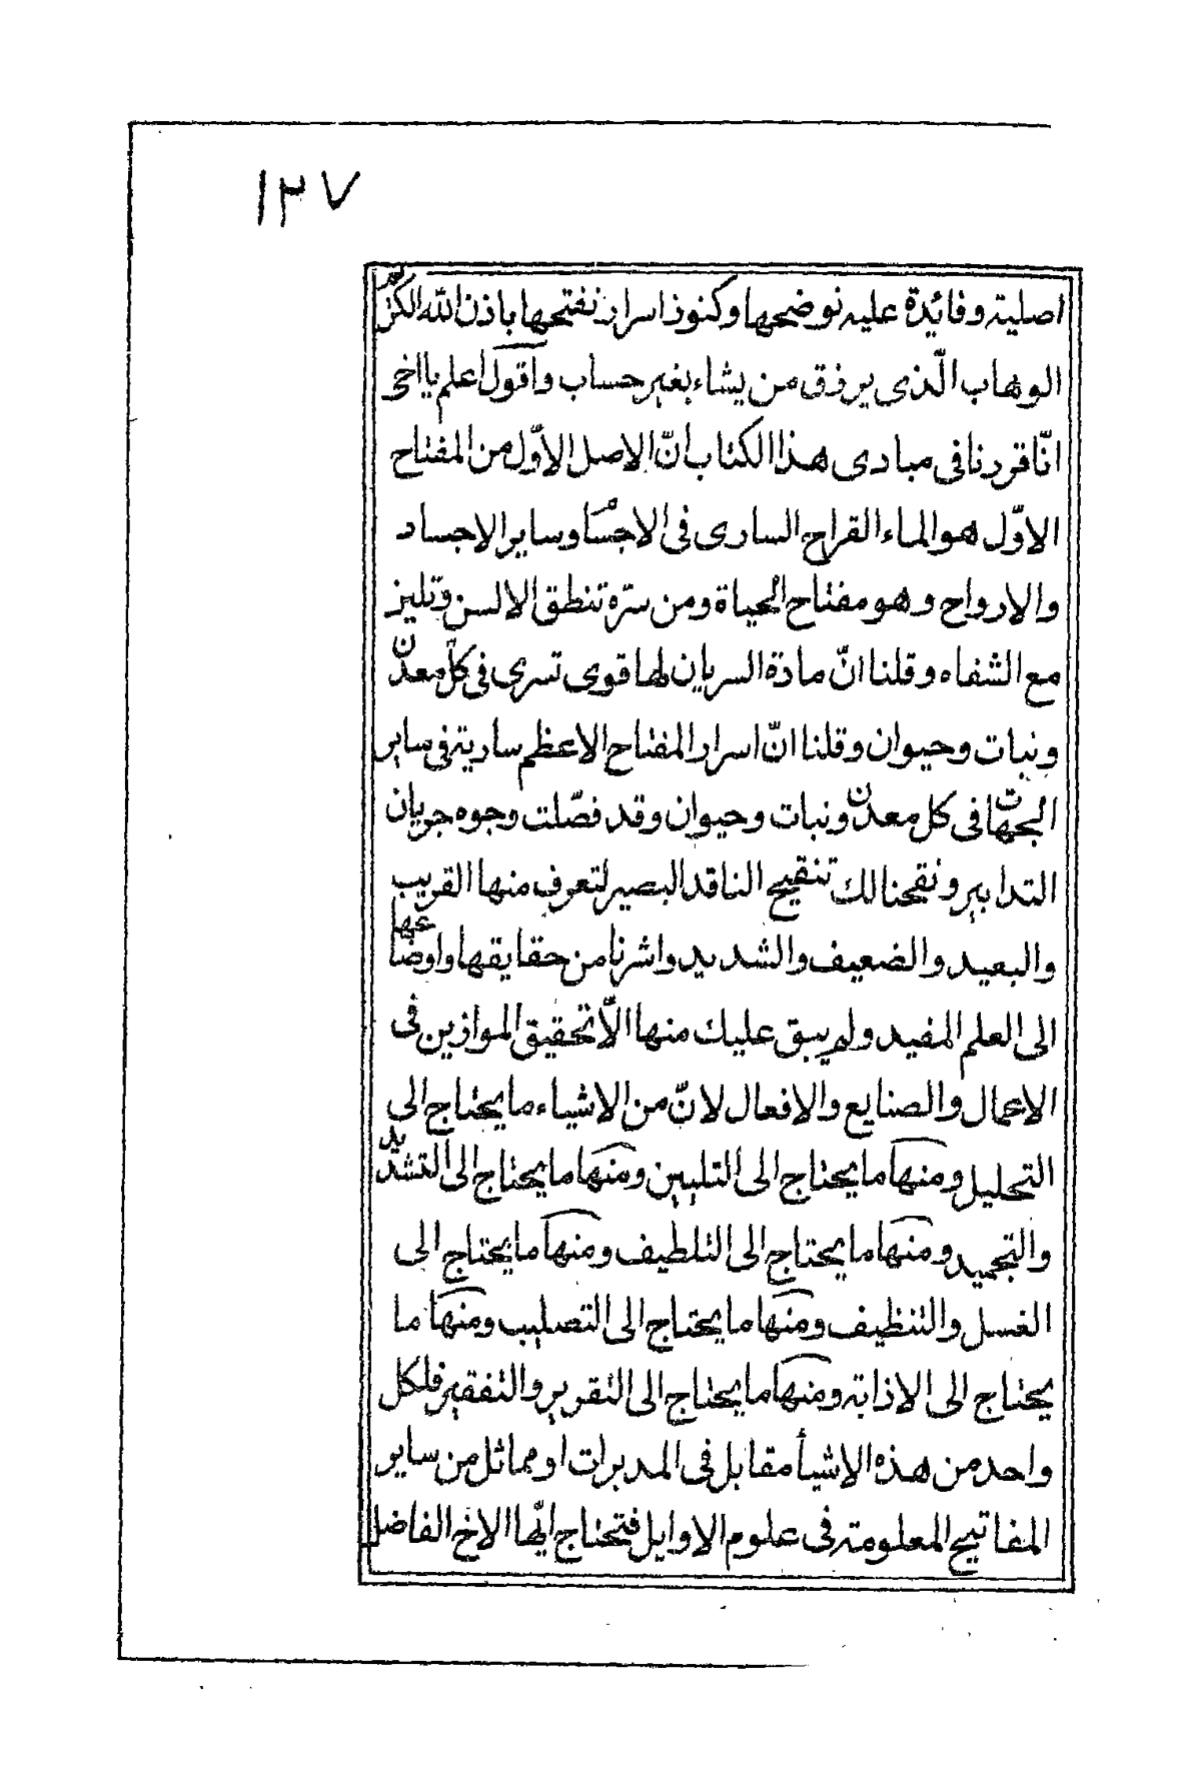 ١٢٧
اصلية وفائدة عليه نوضحها وكنوز اسرار نفتحها باذن الله الكريم
الوهاب الّذى يرزق من يشاء بغير حساب واقول اعلم يا اخى
انّا قررنا فى مبادى هذا الكتاب انّ الاصل الاوّل من المفتاح
الاوّل هو الماء القراح السارى فى الاجسام وساير الاجساد
والارواح وهو مفتاح الحياة ومن سرّه تنطق الالسن وتلين
مع الشفاه وقلنا انّ مادة السريان لها قوى تسرى فى كل معدن
ونبات وحيوان وقلنا انّ اسرار المفتاح الاعظم سارية فى ساير
الجهات فى كل معدن ونبات وحيوان وقد فصّلت وجوه جريان
التدابير ونقحنا لك تنقيح الناقد البصير لتعرف منها القريب
والبعيد والضعيف والشديد واشرنا من حقايقها واوضاعها
الى العلم المفيد ولم يبق عليك منها الّا تحقيق الموازين فى
الاعمال والصنايع والافعال لانّ من الاشياء ما يحتاج الى
التحليل ومنها ما يحتاج الى التليين ومنها ما يحتاج الى التشديد
والتجميد ومنها ما يحتاج الى التلطيف ومنها ما يحتاج الى
الغسل والتنظيف ومنها ما يحتاج الى التصليب ومنها ما
يحتاج الى الاذابة ومنها ما يحتاج الى التقرير والتفقير فلكل
واحد من هذه الاشيأ مقابل فى المدبرات او مماثل من ساير
المفاتيح المعلومة فى علوم الاوايل فتحتاج ايّها الاخ الفاضل